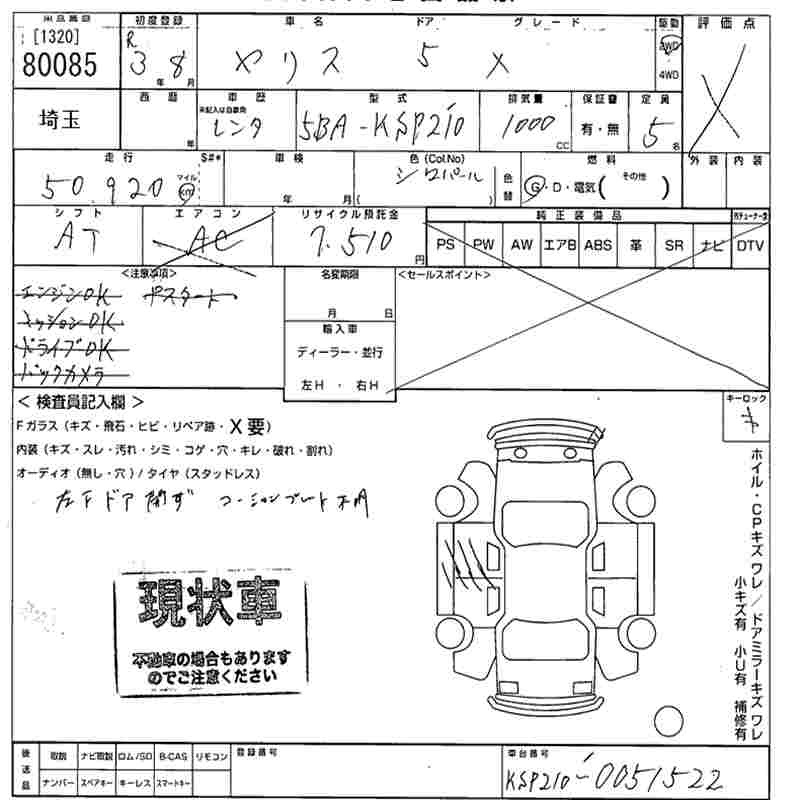 出品番号 初度登録 車名 ドア グレード 駆動 評価点
[1320] R 2WD
80085 3 年 8 月 ヤリス 5 X 4WD X
埼玉 西暦 年 車歴 型式 排気量 保証書 定員
未記入は自家用
レンタ 5BA-KSP210 1000 CC 有・無 5 名
走行 S#* 車検 色(Col.No) 色替 燃料 外装 内装
50,920 マイル km 年 月 シロパール ( ) G・D・電気 ( その他 )
シフト エアコン リサイクル預託金 純正装備品
AT AC 7,510 円 PS PW AW エアB ABS 革 SR ナビ DTV
<注意事項> 名変期限 <セールスポイント>
エンジンOK
ミッションOK 月 日
ドライブOK 輸入車
バックカメラ ディーラー・並行
左H ・ 右H
< 検査員記入欄 > キーロック
Fガラス (キズ・飛石・ヒビ・リペア跡・X要) キ
内装 (キズ・スレ・汚れ・シミ・コゲ・穴・キレ・破れ・割れ)
オーディオ (無し・穴) / タイヤ (スタッドレス)
左F ドア 閉ず コーションプレート不明
ホイル・CPキズワレ/ドアミラーキズワレ
小キズ有 小U有 補修有
現状車
不動車の場合もあります
のでご注意ください
後送品 取説 ナビ取説 ロム/SD B-CAS リモコン 登録番号 車台番号
ナンバー スペアキー キーレス スマートキー KSP210-0051522